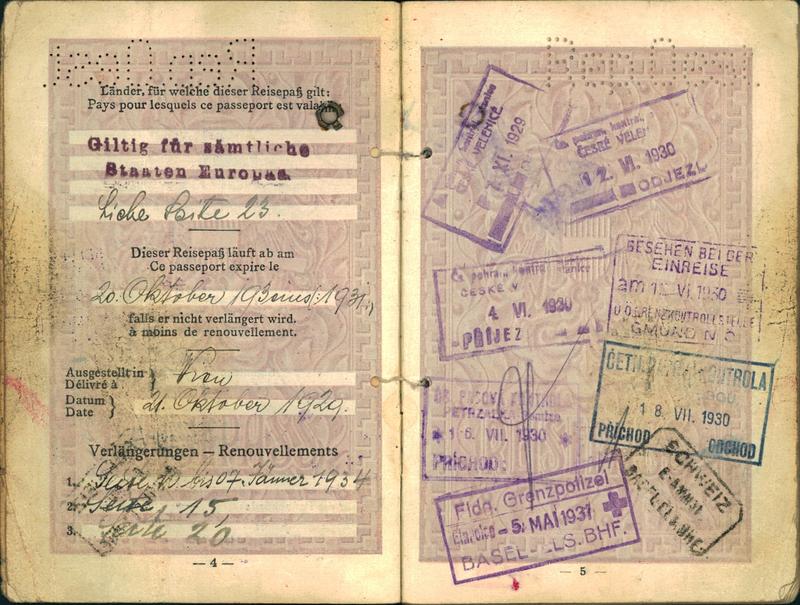 Länder, für welche dieser Reisepaß gilt:
Pays pour lesquels ce passeport est valable
Giltig für sämtliche
Staaten Europas
Siehe Seite 23.
Dieser Reisepaß läuft ab am
Ce passeport expire le
20. Oktober 1931
falls er nicht verlängert wird.
à moins de renouvellement.
Ausgestellt in
Délivré à
Wien
Datum
Date
21. Oktober 1929.
Verlängerungen — Renouvellements
1. Seite bis 07. Jänner 1934
2. Seite 15,
3. Seite 20
— 4 —
VELENICE
XI. 1929
pohran. kontrol.
ČESKÉ VELEN
12. VI. 1930
ODJEZD
pohran. kontrol. stanice
ČESKÉ V
4 VI. 1930
PŘÍJEZ
GESEHEN BEI DER
EINREISE
am 12. VI. 1930
GRENZKONTROLLSTELLE
GMÜND N Ö
ČETN. PASOVÁ KONTROLA
18. VII. 1930
PŘÍCHOD ODCHOD
PASOVÁ KONTROLA
PETRŽALKA
16. VII. 1930
PŘÍCHOD
SCHWEIZ
BASEL
Fldg. Grenzpolizei
-5. MAI 1931
BASEL ELS. BHF.
— 5 —